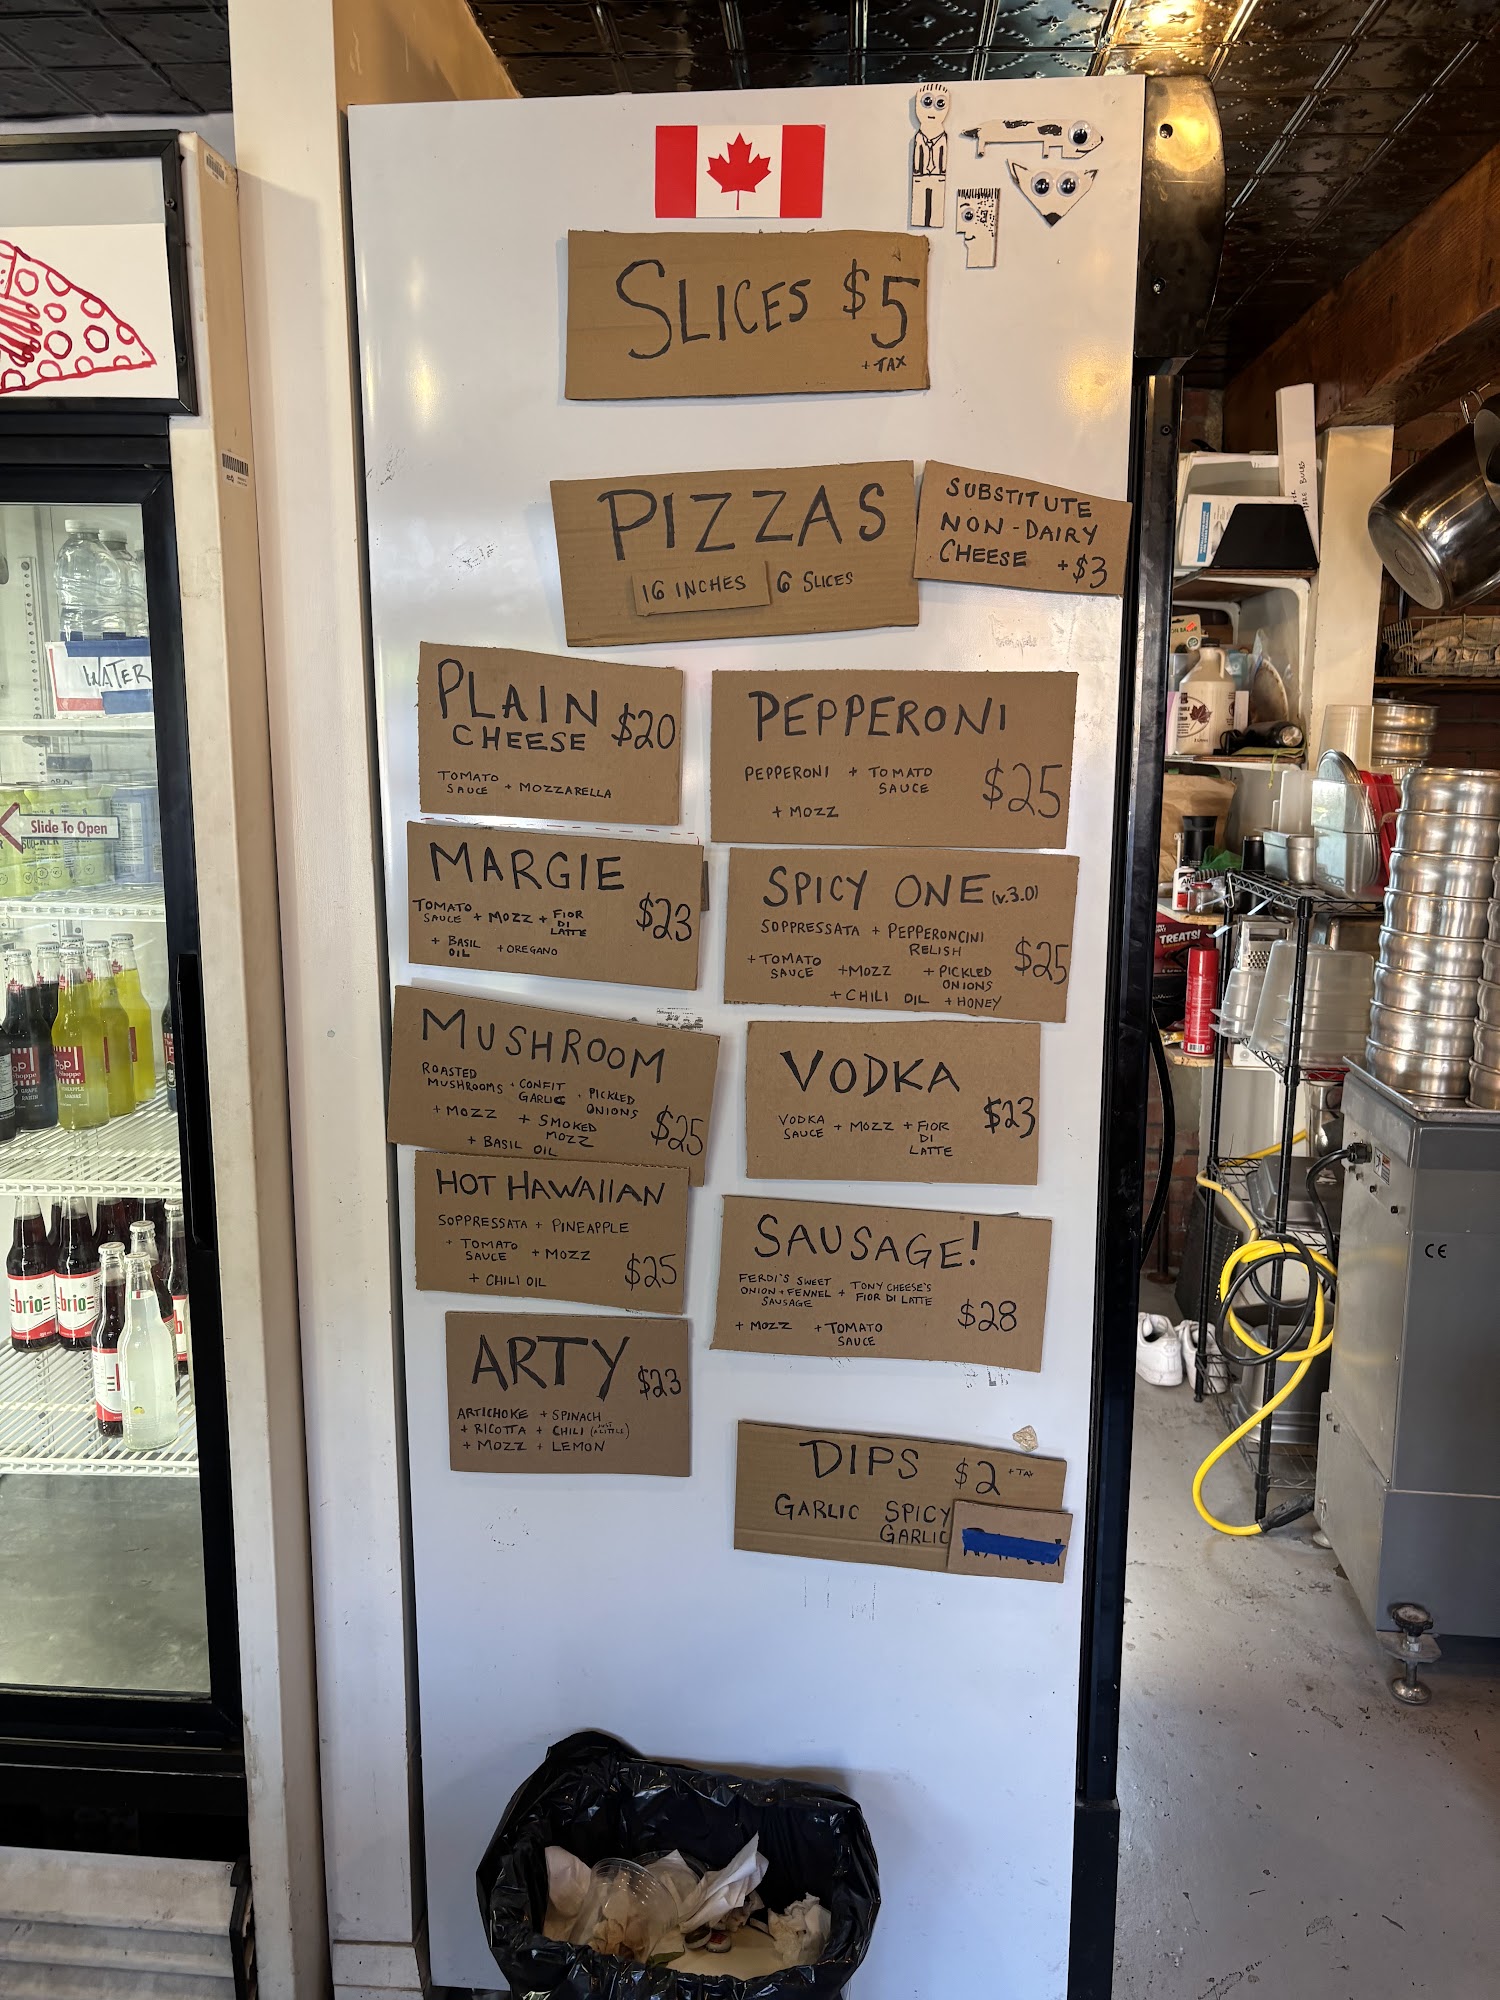 SLICES $5
+ TAX
PIZZAS
16 INCHES 6 SLICES
SUBSTITUTE
NON-DAIRY
CHEESE +$3
PLAIN
CHEESE $20
TOMATO
SAUCE + MOZZARELLA
PEPPERONI
PEPPERONI + TOMATO
SAUCE
+ MOZZ
$25
MARGIE
TOMATO
SAUCE + MOZZ + FIOR
DI
LATTE
+ BASIL
OIL
+ OREGANO
$23
SPICY ONE (V.3.0)
SOPPRESSATA + PEPPERONCINI
RELISH
+TOMATO
SAUCE
+MOZZ
+ PICKLED
ONIONS
+CHILI OIL +HONEY
$25
MUSHROOM
ROASTED
MUSHROOMS + CONFIT
GARLIC + PICKLED
ONIONS
+ MOZZ + SMOKED
MOZZ
+ BASIL OIL
$25
VODKA
VODKA
SAUCE + MOZZ + FIOR
DI
LATTE
$23
HOT HAWAIIAN
SOPPRESSATA + PINEAPPLE
+ TOMATO
SAUCE
+ MOZZ
+ CHILI OIL
$25
SAUSAGE!
FERDI'S SWEET
ONION + FENNEL
SAUSAGE
+ TONY CHEESE'S
FIOR DI LATTE
+ MOZZ + TOMATO
SAUCE
$28
ARTY $23
ARTICHOKE + SPINACH
+ RICOTTA + CHILI (JUST A LITTLE)
+ MOZZ + LEMON
DIPS $2 +TAX
GARLIC SPICY
GARLIC
WATER
Slide To Open
POP
Shoppe
GRAPE
RAISIN
POP
Shoppe
PINEAPPLE
ANANAS
brio
brio
TREATS!
CE